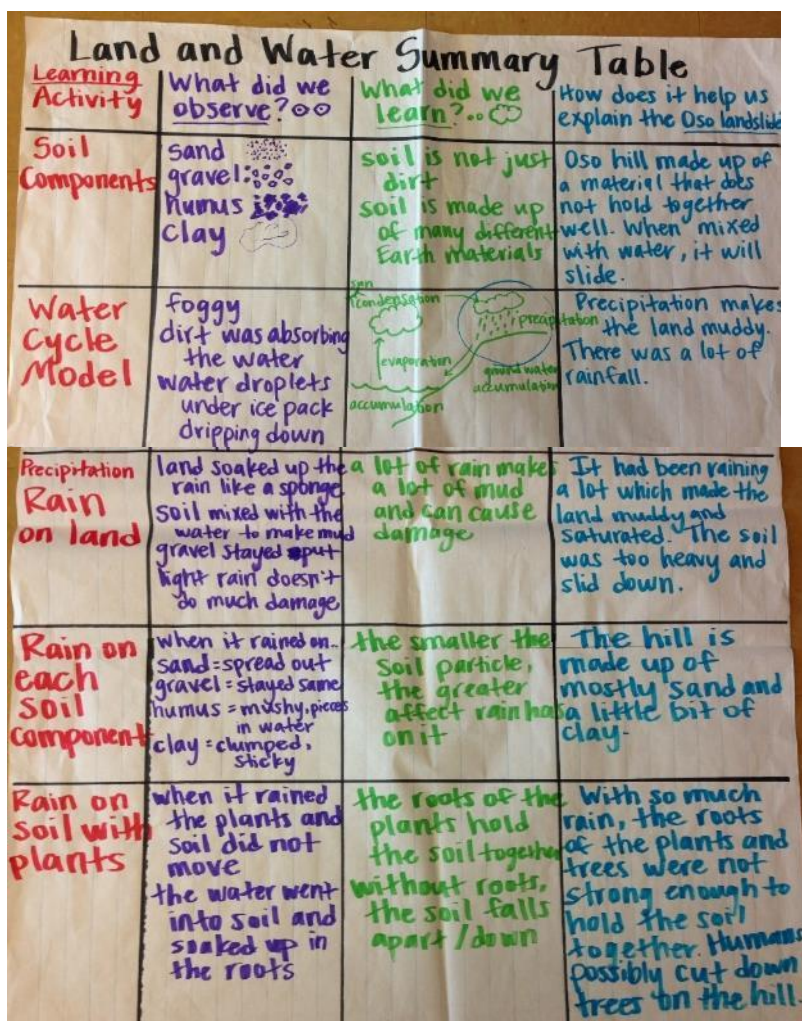 Land and Water Summary Table
Learning
Activity
What did we
observe?
What did we
learn?..
How does it help us
explain the Oso landslide
Soil
Components
sand
gravel:
humus
clay
soil is not just
dirt
soil is made up
of many different
Earth materials
Oso hill made up of
a material that does
not hold together
well. When mixed
with water, it will
slide.
Water
Cycle
Model
foggy
dirt was absorbing
the water
water droplets
under ice pack
dripping down
sun
condensation
precipitation
evaporation
ground water
accumulation
accumulation
Precipitation makes
the land muddy.
There was a lot of
rainfall.
Precipitation
Rain
on land
land soaked up the
rain like a sponge
soil mixed with the
water to make mud
gravel stayed put
light rain doesn't
do much damage
a lot of rain makes
a lot of mud
and can cause
damage
It had been raining
a lot which made the
land muddy and
saturated. The soil
was too heavy and
slid down.
Rain on
each
soil
component
when it rained on..
sand=spread out
gravel=stayed same
humus=mushy, pieces
in water
clay=clumped,
sticky
the smaller the
soil particle,
the greater
affect rain has
on it
The hill is
made up of
mostly sand and
a little bit of
clay.
Rain on
soil with
plants
when it rained
the plants and
soil did not
move
the water went
into soil and
soaked up in
the roots
the roots of the
plants hold
the soil together
without roots,
the soil falls
apart/down
With so much
rain, the roots
of the plants and
trees were not
strong enough to
hold the soil
together. Humans
possibly cut down
trees on the hill.